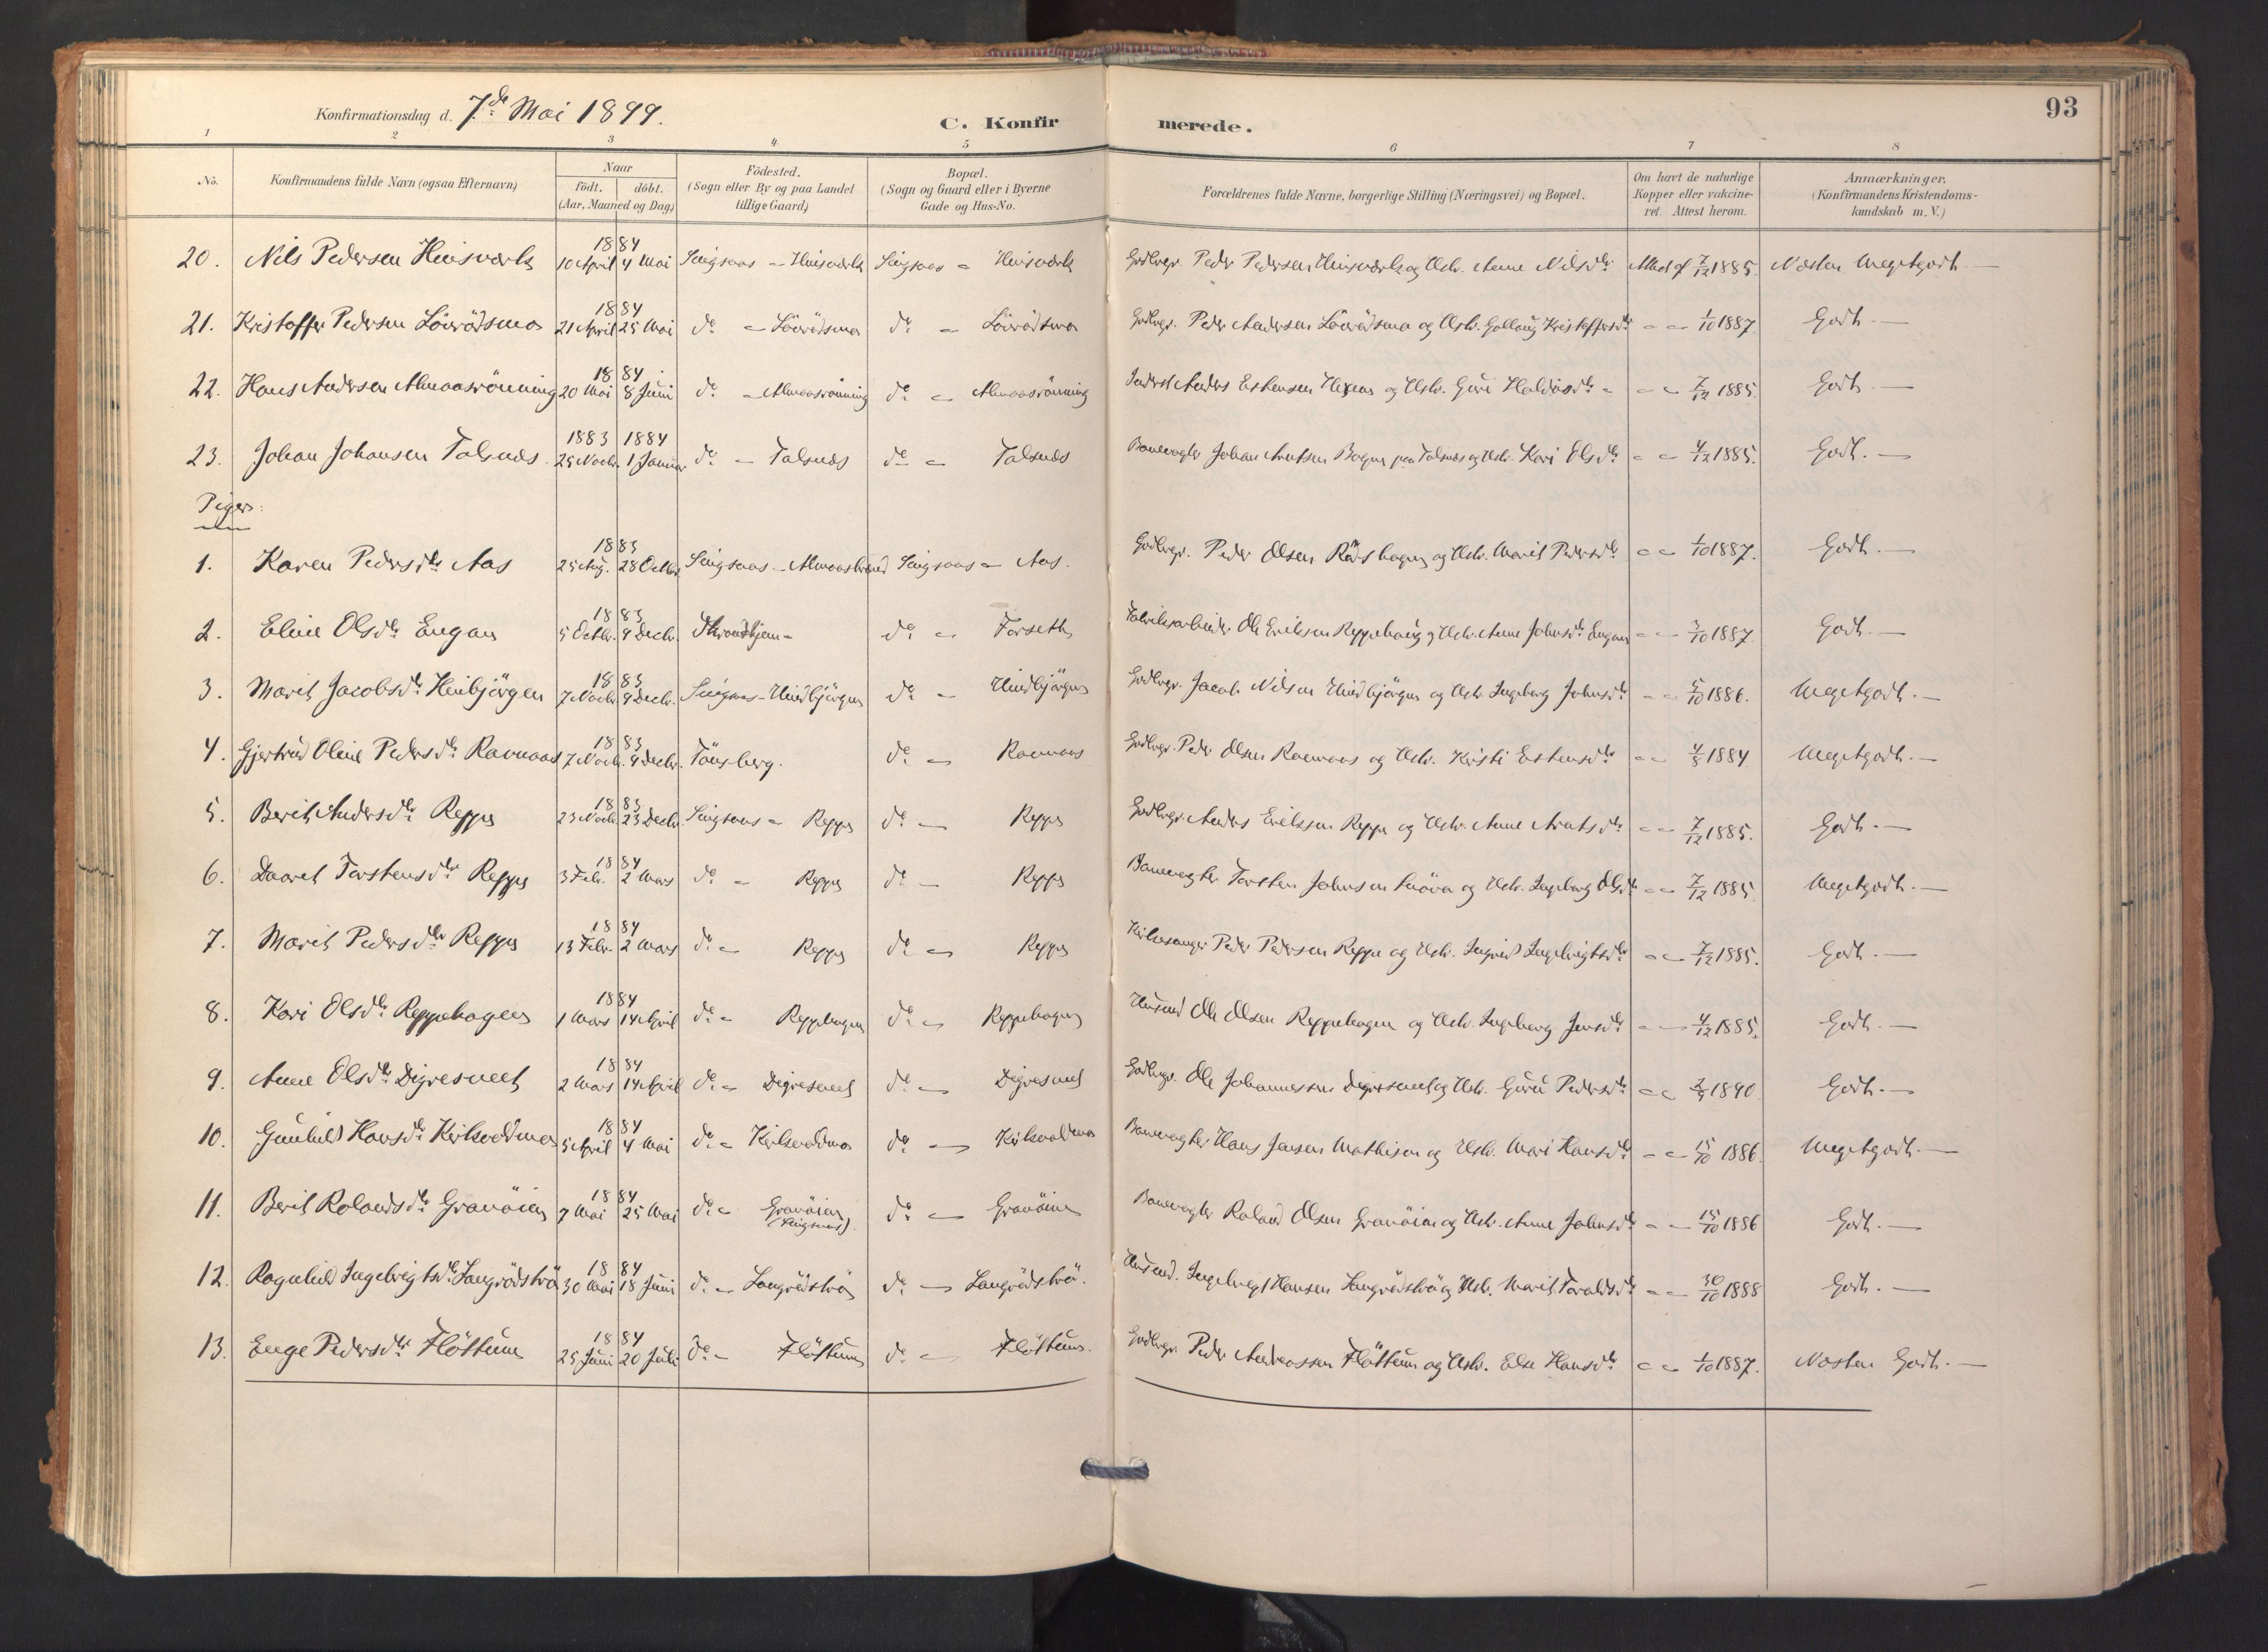 93
Konfirmationsdag d. 7de Mai 1899.
C. Konfirmerede.
1 2 3 4 5 6 7 8
No. Konfirmandens fulde Navn (ogsaa Efternavn) Naar født. døbt. (Aar, Maaned og Dag) Födested. (Sogn eller By og paa Landet tillige Gaard) Bopæl. (Sogn og Gaard eller i Byerne Gade og Hus-No. Forældrenes fulde Navne, borgerlige Stilling (Næringsvei) og Bopæl. Om havt de naturlige Kopper eller vakcineret. Attest herom. Anmærkninger. (Konfirmandens Kristendomskundskab m. V.)
20. Nils Pedersen 1884 10 April 4 Mai Singsaas Singsaas Gaardbrgr. Peder Pedersen og Hstr. Anne Nilsdtr. Med af 7/12 1885. Næsten Megetgodt.
21. Kristoffer Pedersen Lövrödsmo 1884 21 April 25 Mai do - Lövrödsmo do - Lövrödsmo Gbrgr. Peder Andersen Lövrödsmo og Hstr. Kristoffersdtr. 1/10 1887 Godt.
22. Hans Andersen Almaasrönning 1884 20 Mai 8 Juni do - Almaasrönning do - Almaasrönning Anders Estensen og Hstr. Guri Haldosdtr. 7/12 1885. Godt.
23. Johan Johansen Talsnes 1883 25 Novbr. 1884 1 Januar do - Talsnes do - Talsnes Banevogter Johan Arntsen paa Talsnes og Hstr. Kari Olsdtr. 4/12 1885. Godt.
Piger:
1. Karen Pedersdtr. Aas 1883 25 Aug. 28 Octbr. Singsaas - Singsaas - Aas. Gbrgr. Peder Olsen og Hstr. Marit Pedersdtr. 1/10 1887. Godt.
2. Eline Olsdtr. Engan 1883 5 Octbr. 9 Decbr. Throndhjem - do - Forseth Fabrikarbeider Ole Eriksen Reppehaug og Hstr. Anne Johnsdtr. Engan 10 1887. Godt.
3. Marit Jacobsdtr. Heinbjörgen 1883 7 Novbr. 9 Decbr. Singsaas - do - Gbrgr. Jacob Nilsen og Hstr. Ingeborg Johnsdtr. 5/10 1886. Megetgodt.
4. Gjertrud Oline Pedersdtr. Ravnaas 1883 7 Novbr. 9 Decbr. Tönsberg. do - Ravnaas Gbrgr. Peder Olsen Ravnaas og Hstr. Kirsti Estensdtr. 1884 Megetgodt.
5. Berit Andersdtr. Reppe 1883 23 Novbr. 23 Decbr. Singsaas - Reppe do - Reppe Gbrgr. Anders Eriksen Reppe og Hstr. Anne Arntsdtr. 7/12 1885. Godt.
6. Daaret Torstensdtr. Reppe 1884 3 Febr. 2 Mars do - Reppe do - Reppe Banevogter Torsten Johnsen og Hstr. Ingeborg Olsdtr. 7/12 1885. Megetgodt.
7. Marit Pedersdtr. Reppe 1884 13 Febr. 2 Mars do - Reppe do - Reppe Kirkesanger Peder Pedersen Reppe og Hstr. Ingrid Ingebrigtsdtr. 7/12 1885. Godt.
8. Kari Olsdtr. Reppehagen 1884 1 Mars 14 April do - Reppehagen do - Reppehagen Husmd. Ole Olsen Reppehagen og Hstr. Ingeborg Jensdtr. 4/12 1885. Godt.
9. Anne Olsdtr. Digresmet 1884 2 Mars 14 April do - Digresmet do - Digresmet Gbrgr. Ole Johannessen Digresmet og Hstr. Guru Pedersdtr. 1890 Godt.
10. Gunhild Hansdtr. Kirkvoldmo 1884 5 April 4 Mai do - Kirkvoldmo do - Kirkvoldmo Banevogter Hans Jensen Mathisen og Hstr. Mari Hansdtr. 15/10 1886. Megetgodt.
11. Berit Rolandsdtr. Granöien 1884 7 Mai 25 Mai do - Granöien (Singsaas). do - Granöien Banevogter Roland Olsen Granöien og Hstr. Anne Johnsdtr. 15/10 1886 Godt.
12. Ragnhild Ingebrigtsdtr. Langrödströ 1884 30 Mai 18 Juni do - Langrödströ do - Langrödströ. Husmd. Ingebrigt Hansen Langrödströ og Hstr. Marit Toraldsdtr. 30/10 1888 Godt.
13. Enge Pedersdtr. Flöttum 1884 25 Juni 20 Juli do - Flöttum do - Flöttum. Gbrgr. Peder Andreassen Flöttum og Hstr. Else Hansdtr. 1/10 1887. Næsten Godt.